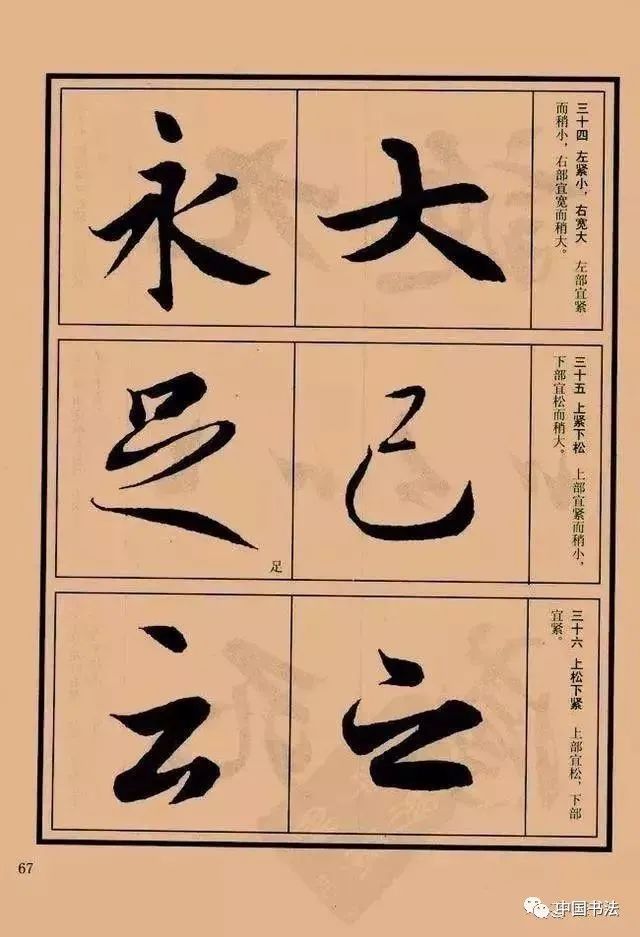 三十四 左紧小，右宽大 左部宜紧
而稍小，右部宜宽而稍大。
大
永
三十五 上紧下松 上部宜紧而稍小，
下部宜松而稍大。
己
足
足
三十六 上松下紧 上部宜松，下部
宜紧。
之
云
67
中国书法